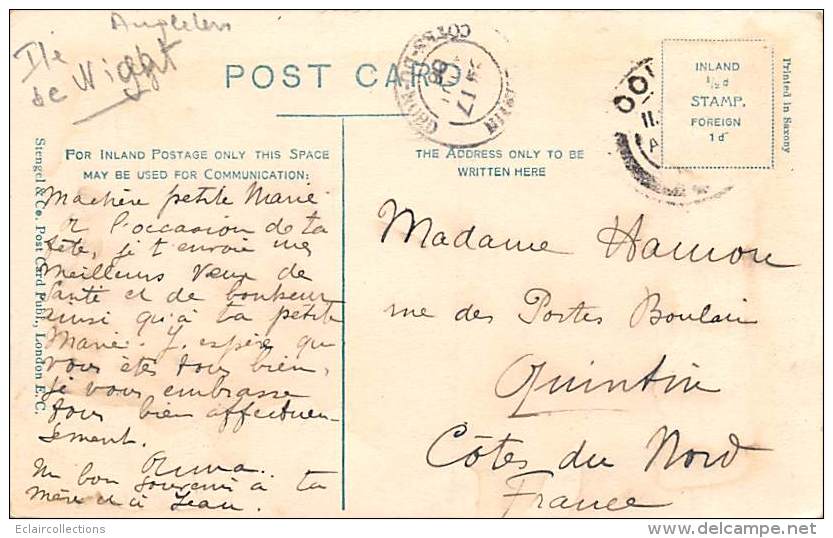 Angleterre
Ile
de Wight
POST CARD
COTES-DU-NORD
17
INLAND
½d
STAMP.
FOREIGN
1d
Printed in Saxony
Stengel & Co. Post Card Publ., London E.C.
FOR INLAND POSTAGE ONLY THIS SPACE
MAY BE USED FOR COMMUNICATION:
THE ADDRESS ONLY TO BE
WRITTEN HERE
Ma chère petite Marie
A l'occasion de ta
fête, je t'envoie mes
meilleurs vœux de
santé et de bonheur
ainsi qu'à ta petite
Marie. J'espère que
vous êtes tous bien,
je vous embrasse
tous bien affectueu-
sement.
Anna.
Un bon souvenir à ta
mère et à Jean.
Madame Hamon
rue des Portes Boulain
Quintin
Côtes du Nord
France
Eclaircollections
delcampe.net